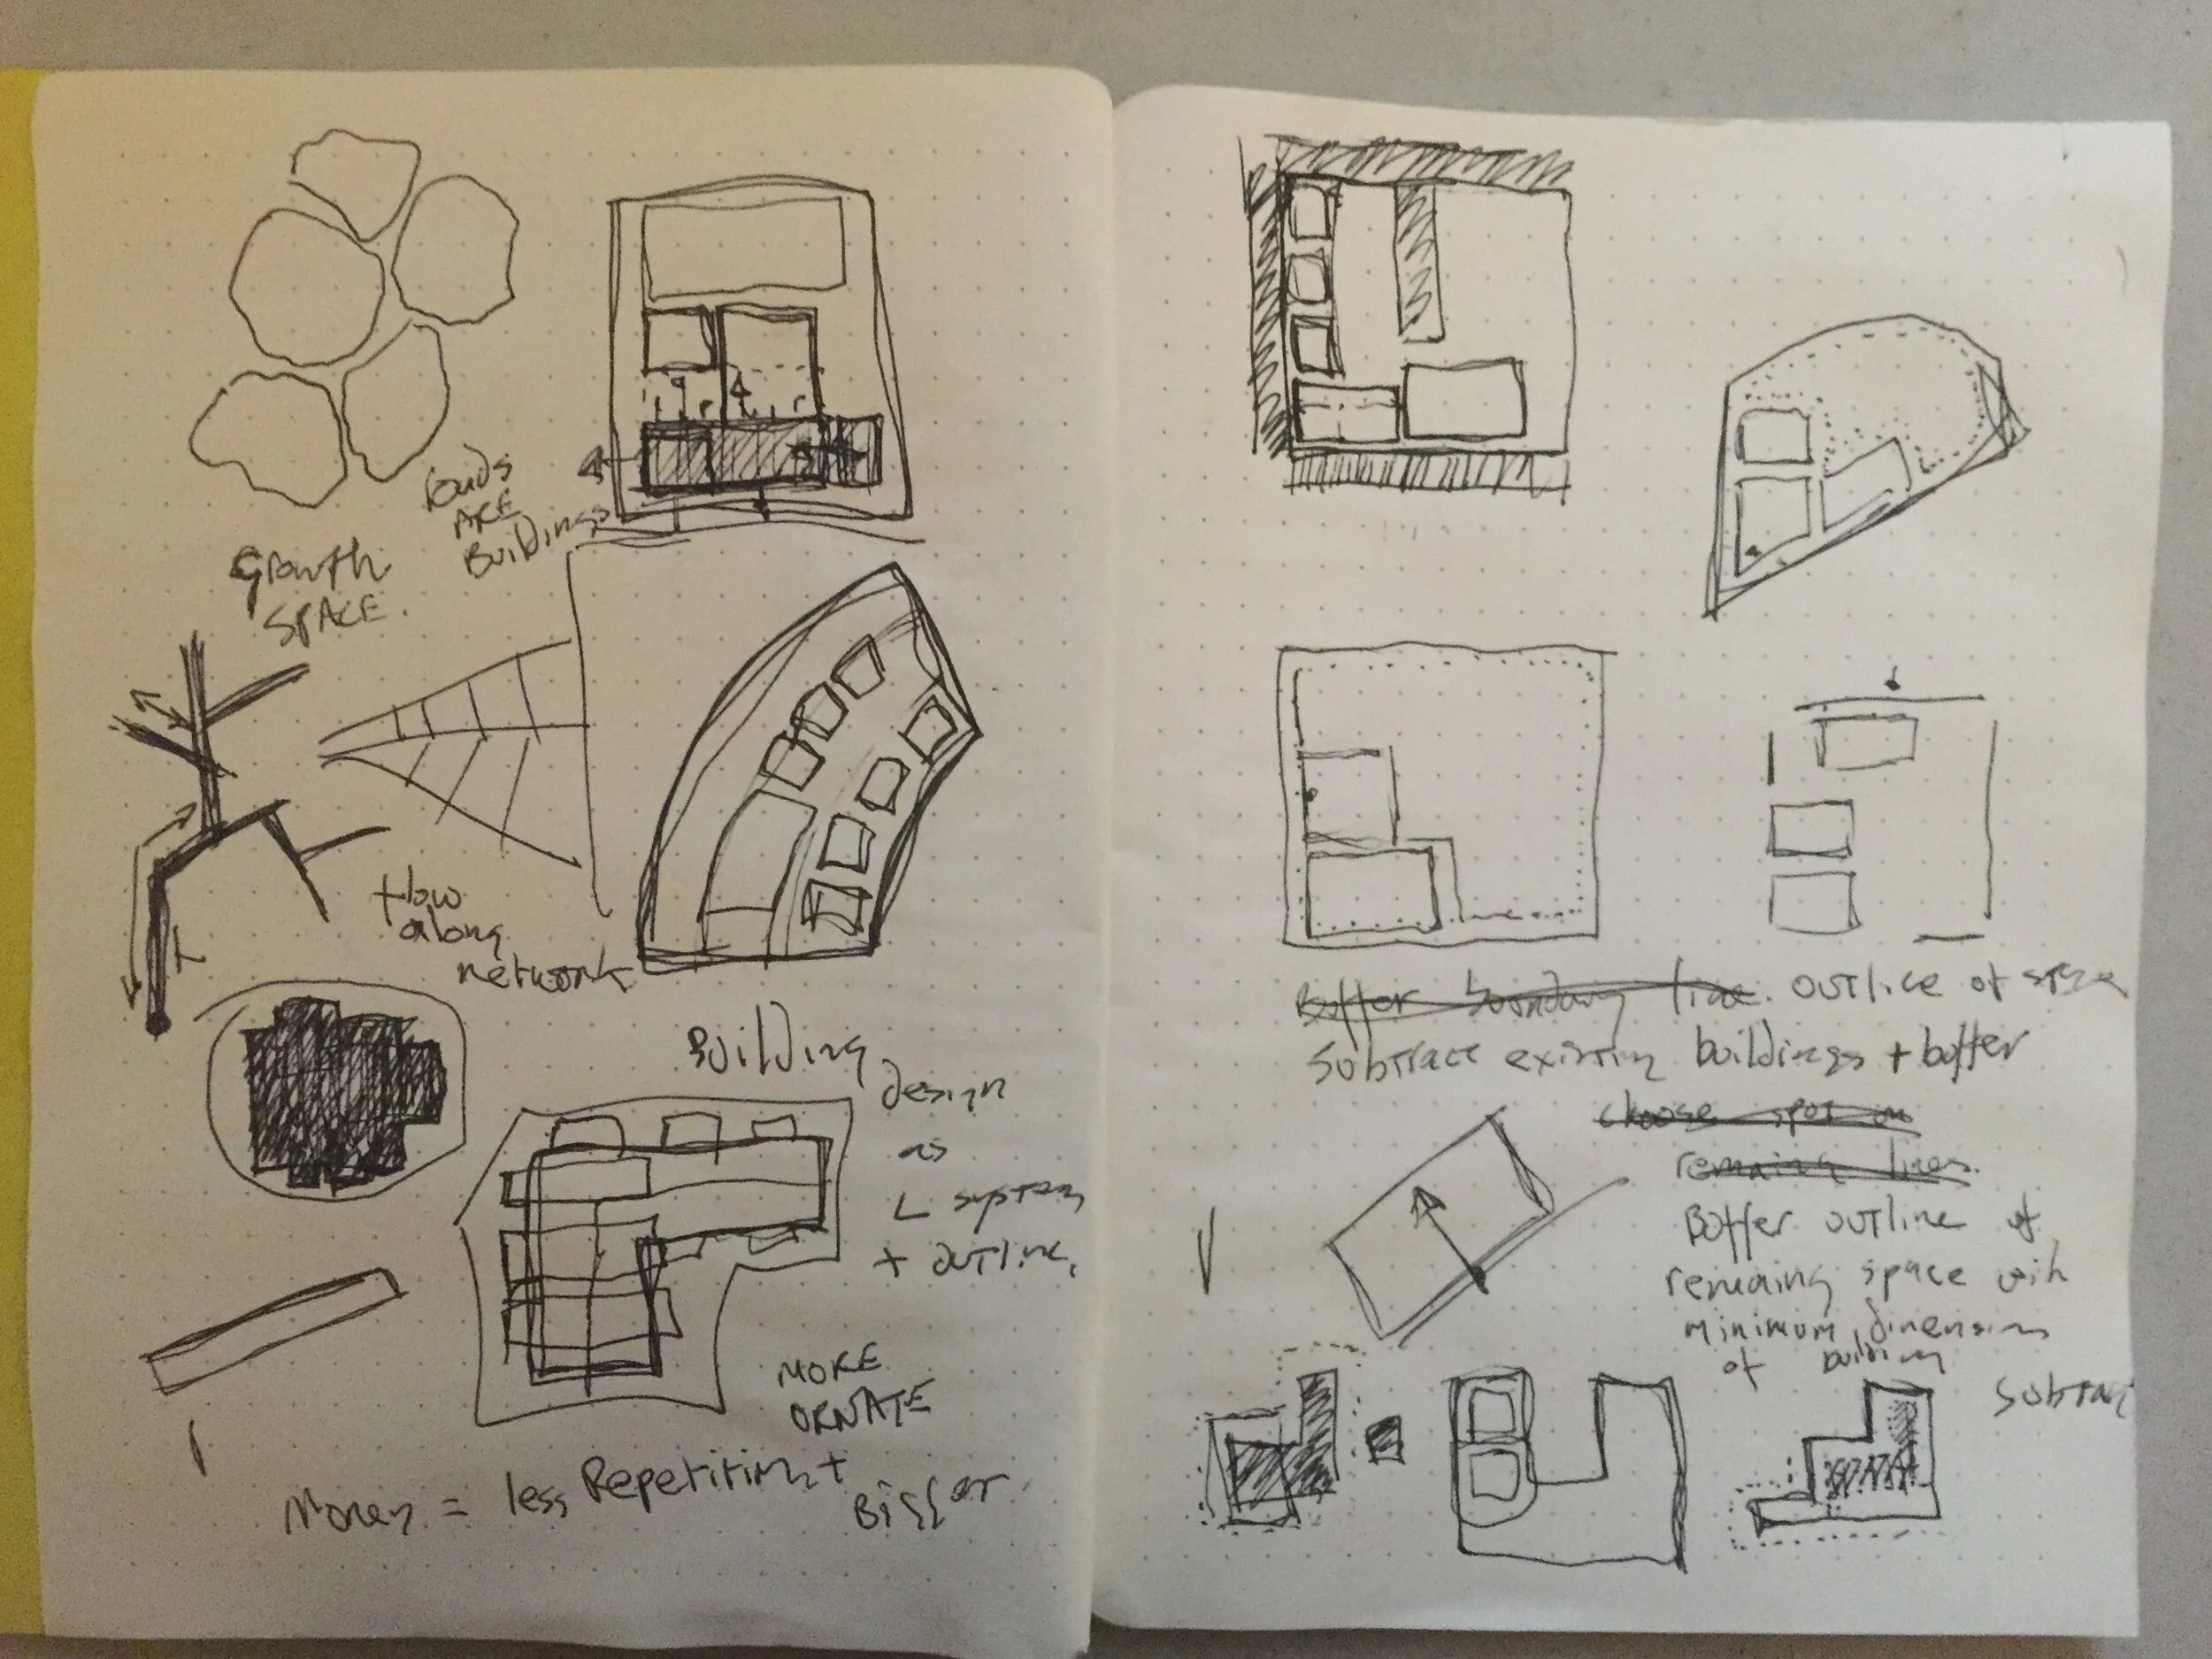 ARE
Buildings
Growth
SPACE.
flow
along
network
Building
design
as
L system
+ outline,
MORE
ORNATE
Money = less Repetition +
Bigger
Buffer boundary line. outline of space
Subtract existing buildings + buffer
choose spot on
remaining lines.
Buffer outline of
remaining space with
minimum dimension
of building
Subtract